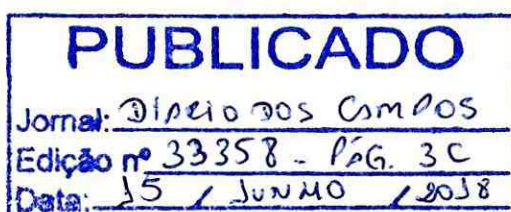 PUBLICADO
Jornal: DIÁRIO DOS CAMPOS
Edição nº 33358 - PÁG. 3C
Data: 15 / JUNHO / 2018